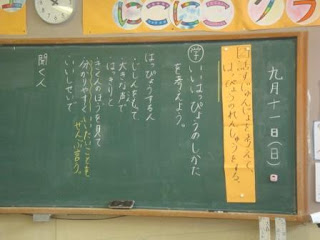 にこにこ
クラ
九月十一日(日)
話すじゅんじょをえらんで、
はっぴょうのれんしゅうをする。
学 いいはっぴょうのしかた
を考えよう。
はっぴょうする人
・じしんをもって
大きな声で
はっきりと
きく人のほうを見て
分かりやすくいいたいことを、
ぜんぶ言う。
いいしせいで
聞く人